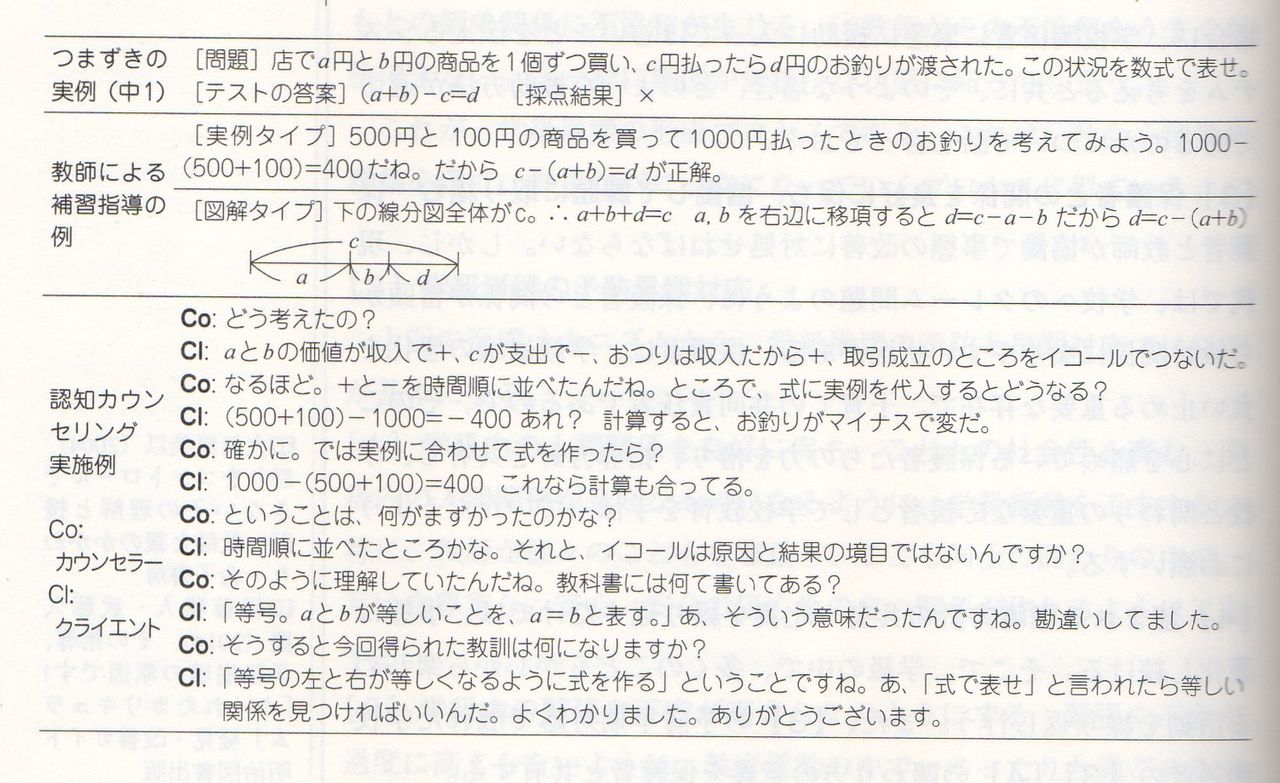 つまずきの
実例（中1）
［問題］店でa円とb円の商品を1個ずつ買い、c円払ったらd円のお釣りが渡された。この状況を数式で表せ。
［テストの答案］(a+b)−c=d　［採点結果］×
教師による
補習指導の
例
［実例タイプ］500円と100円の商品を買って1000円払ったときのお釣りを考えてみよう。1000−
(500+100)=400だね。だから c−(a+b)=dが正解。
［図解タイプ］下の線分図全体がc。∴ a+b+d=c　a, bを右辺に移項するとd=c−a−bだからd=c−(a+b)
c
a b d
認知カウン
セリング
実施例
Co:
カウンセラー
Cl:
クライエント
Co: どう考えたの？
Cl: aとbの価値が収入で＋、cが支出で−、おつりは収入だから＋、取引成立のところをイコールでつないだ。
Co: なるほど。＋と−を時間順に並べたんだね。ところで、式に実例を代入するとどうなる？
Cl: (500+100)−1000=−400 あれ？ 計算すると、お釣りがマイナスで変だ。
Co: 確かに。では実例に合わせて式を作ったら？
Cl: 1000−(500+100)=400 これなら計算も合ってる。
Co: ということは、何がまずかったのかな？
Cl: 時間順に並べたところかな。それと、イコールは原因と結果の境目ではないんですか？
Co: そのように理解していたんだね。教科書には何て書いてある？
Cl: 「等号。aとbが等しいことを、a=bと表す。」あ、そういう意味だったんですね。勘違いしてました。
Co: そうすると今回得られた教訓は何になりますか？
Cl: 「等号の左と右が等しくなるように式を作る」ということですね。あ、「式で表せ」と言われたら等しい
関係を見つければいいんだ。よくわかりました。ありがとうございます。